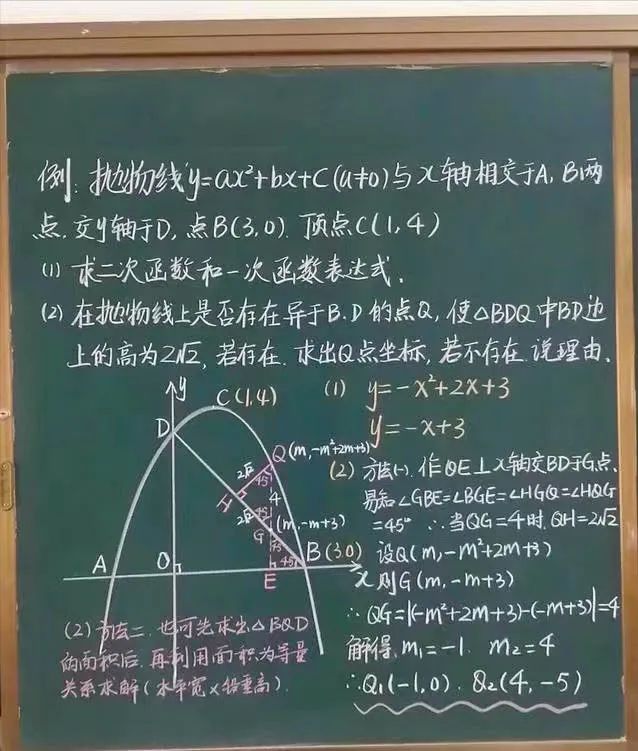 例:抛物线y=ax²+bx+C(a≠0)与x轴相交于A,B两
点.交y轴于D,点B(3,0).顶点C(1,4)
(1)求二次函数和一次函数表达式.
(2)在抛物线上是否存在异于B.D的点Q,使△BDQ中BD边
上的高为2√2,若存在.求出Q点坐标,若不存在.说理由.
y
C(1,4)
D
Q(m,-m²+2m+3)
2√2
45°
H
4
2√2
45°
G
(m,-m+3)
45
45°
A
O
E
B(3,0)
x
(1) y=-x²+2x+3
y=-x+3
(2)方法(一).作QE⊥x轴交BD于G点.
易知∠GBE=∠BGE=∠HGQ=∠HQG
=45° ∴当QG=4时.QH=2√2
设Q(m,-m²+2m+3)
则G(m,-m+3)
∴QG=|(-m²+2m+3)-(-m+3)|=4
解得.m₁=-1. m₂=4
∴Q₁(-1,0).Q₂(4,-5)
(2)方法二.也可先求出△BQD
的面积后.再利用面积为等量
关系求解(水平宽×铅垂高).